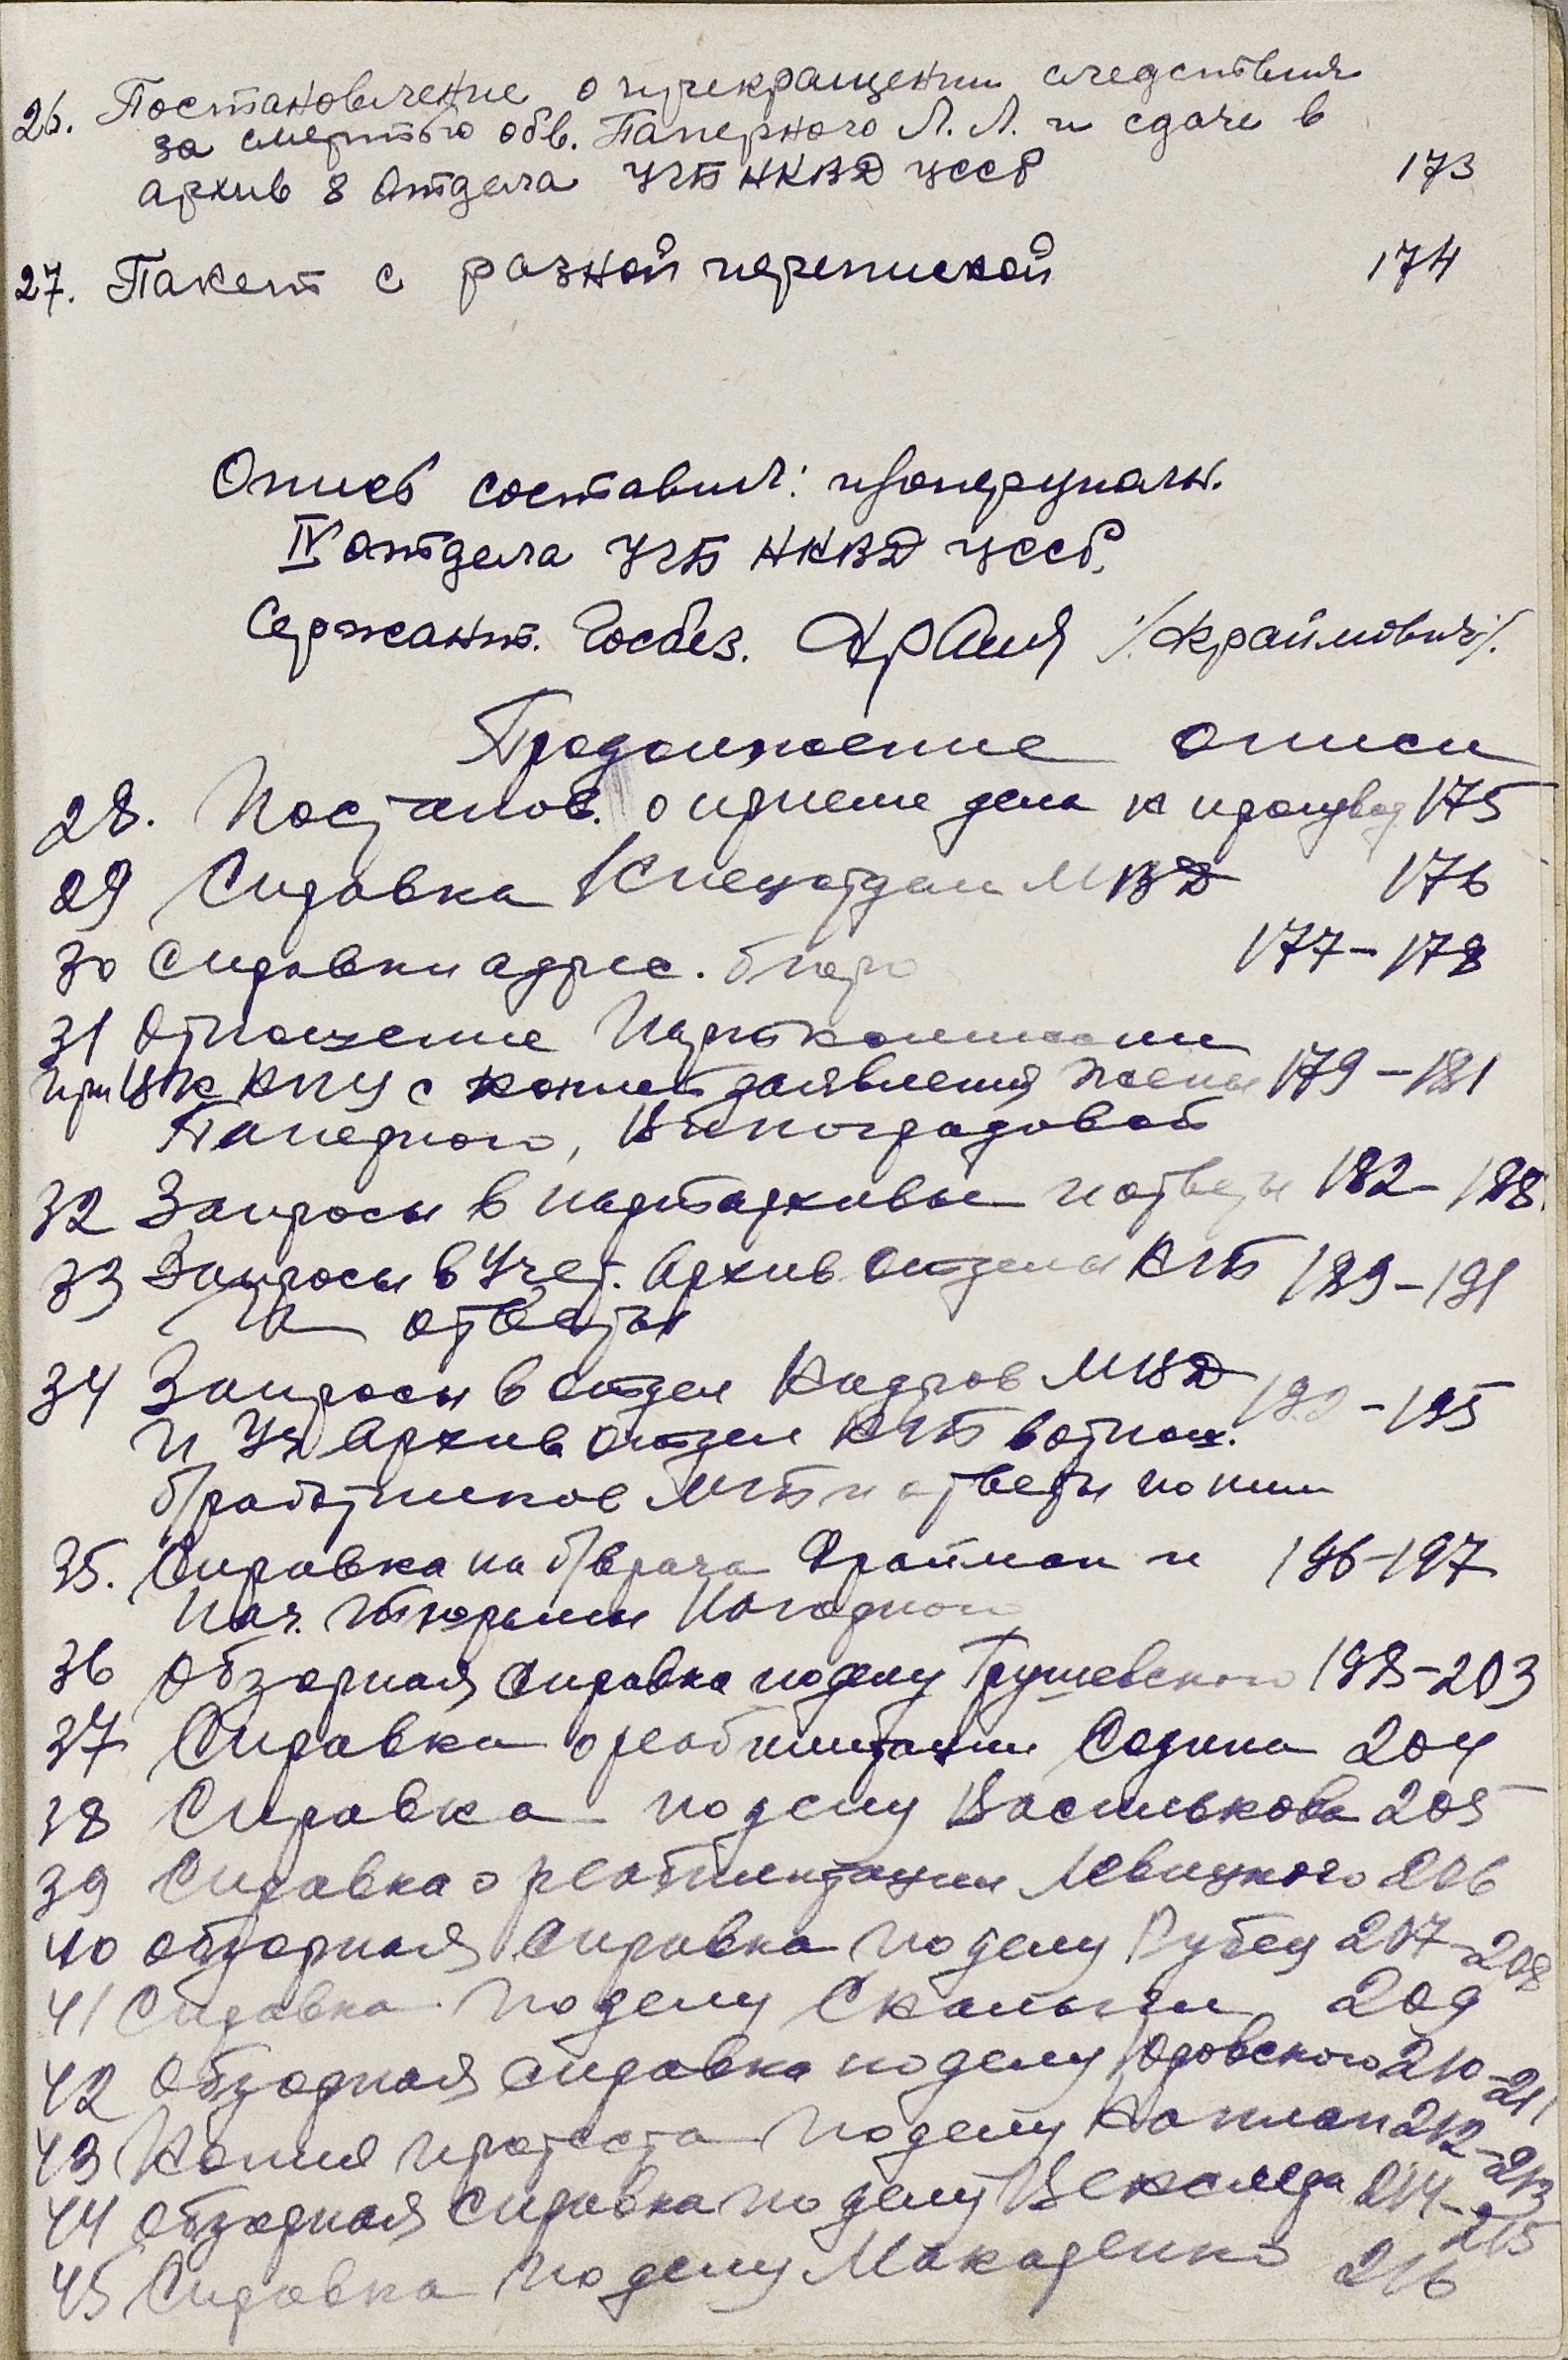 26. Постановление о прекращении следствия
за смертью обв. Паперного Л. Л. и сдаче в
архив 8 Отдела УГБ НКВД УССР 173
27. Пакет с разной перепиской 174
Опись составил:
IV отдела УГБ НКВД УССР,
Сержант. Госбез. /Краймович/.
Продолжение описи
28. Постанов. о приеме дела к производ 175
29 Справка Спецотдела МВД 176
30 Справки адрес. бюро 177-178
31 Отношение Парткомиссии
при ЦК КПУ с копией заявления жены 179-181
Паперного, Виноградовой
32 Запросы в партархивы и ответы 182-188.
33 Запросы в Учет. Архив Отдела КГБ 189-191
и ответы
34 Запросы в отдел Кадров МВД 192-195
и Уч Архив Отдел КГБ в отнош.
б/работников МГБ и ответы по ним
35. Справка на б/врача Фрайман и 196-197
Нач. тюрьмы Нагорного
36 Обзорная справка по делу Грушевского 198-203
37 Справка о реабилитации Седина 204
38 Справка по делу Василькова 205
39 Справка о реабилитации Левицкого 206
40 Обзорная справка по делу Рубец 207-208
41 Справка по делу 209
42 Обзорная справка по делу Юдовского 210-211
43 Копия протеста по делу Каплан 212-213
44 Обзорная справка по делу 214-215
45 Справка по делу Макаренко 216